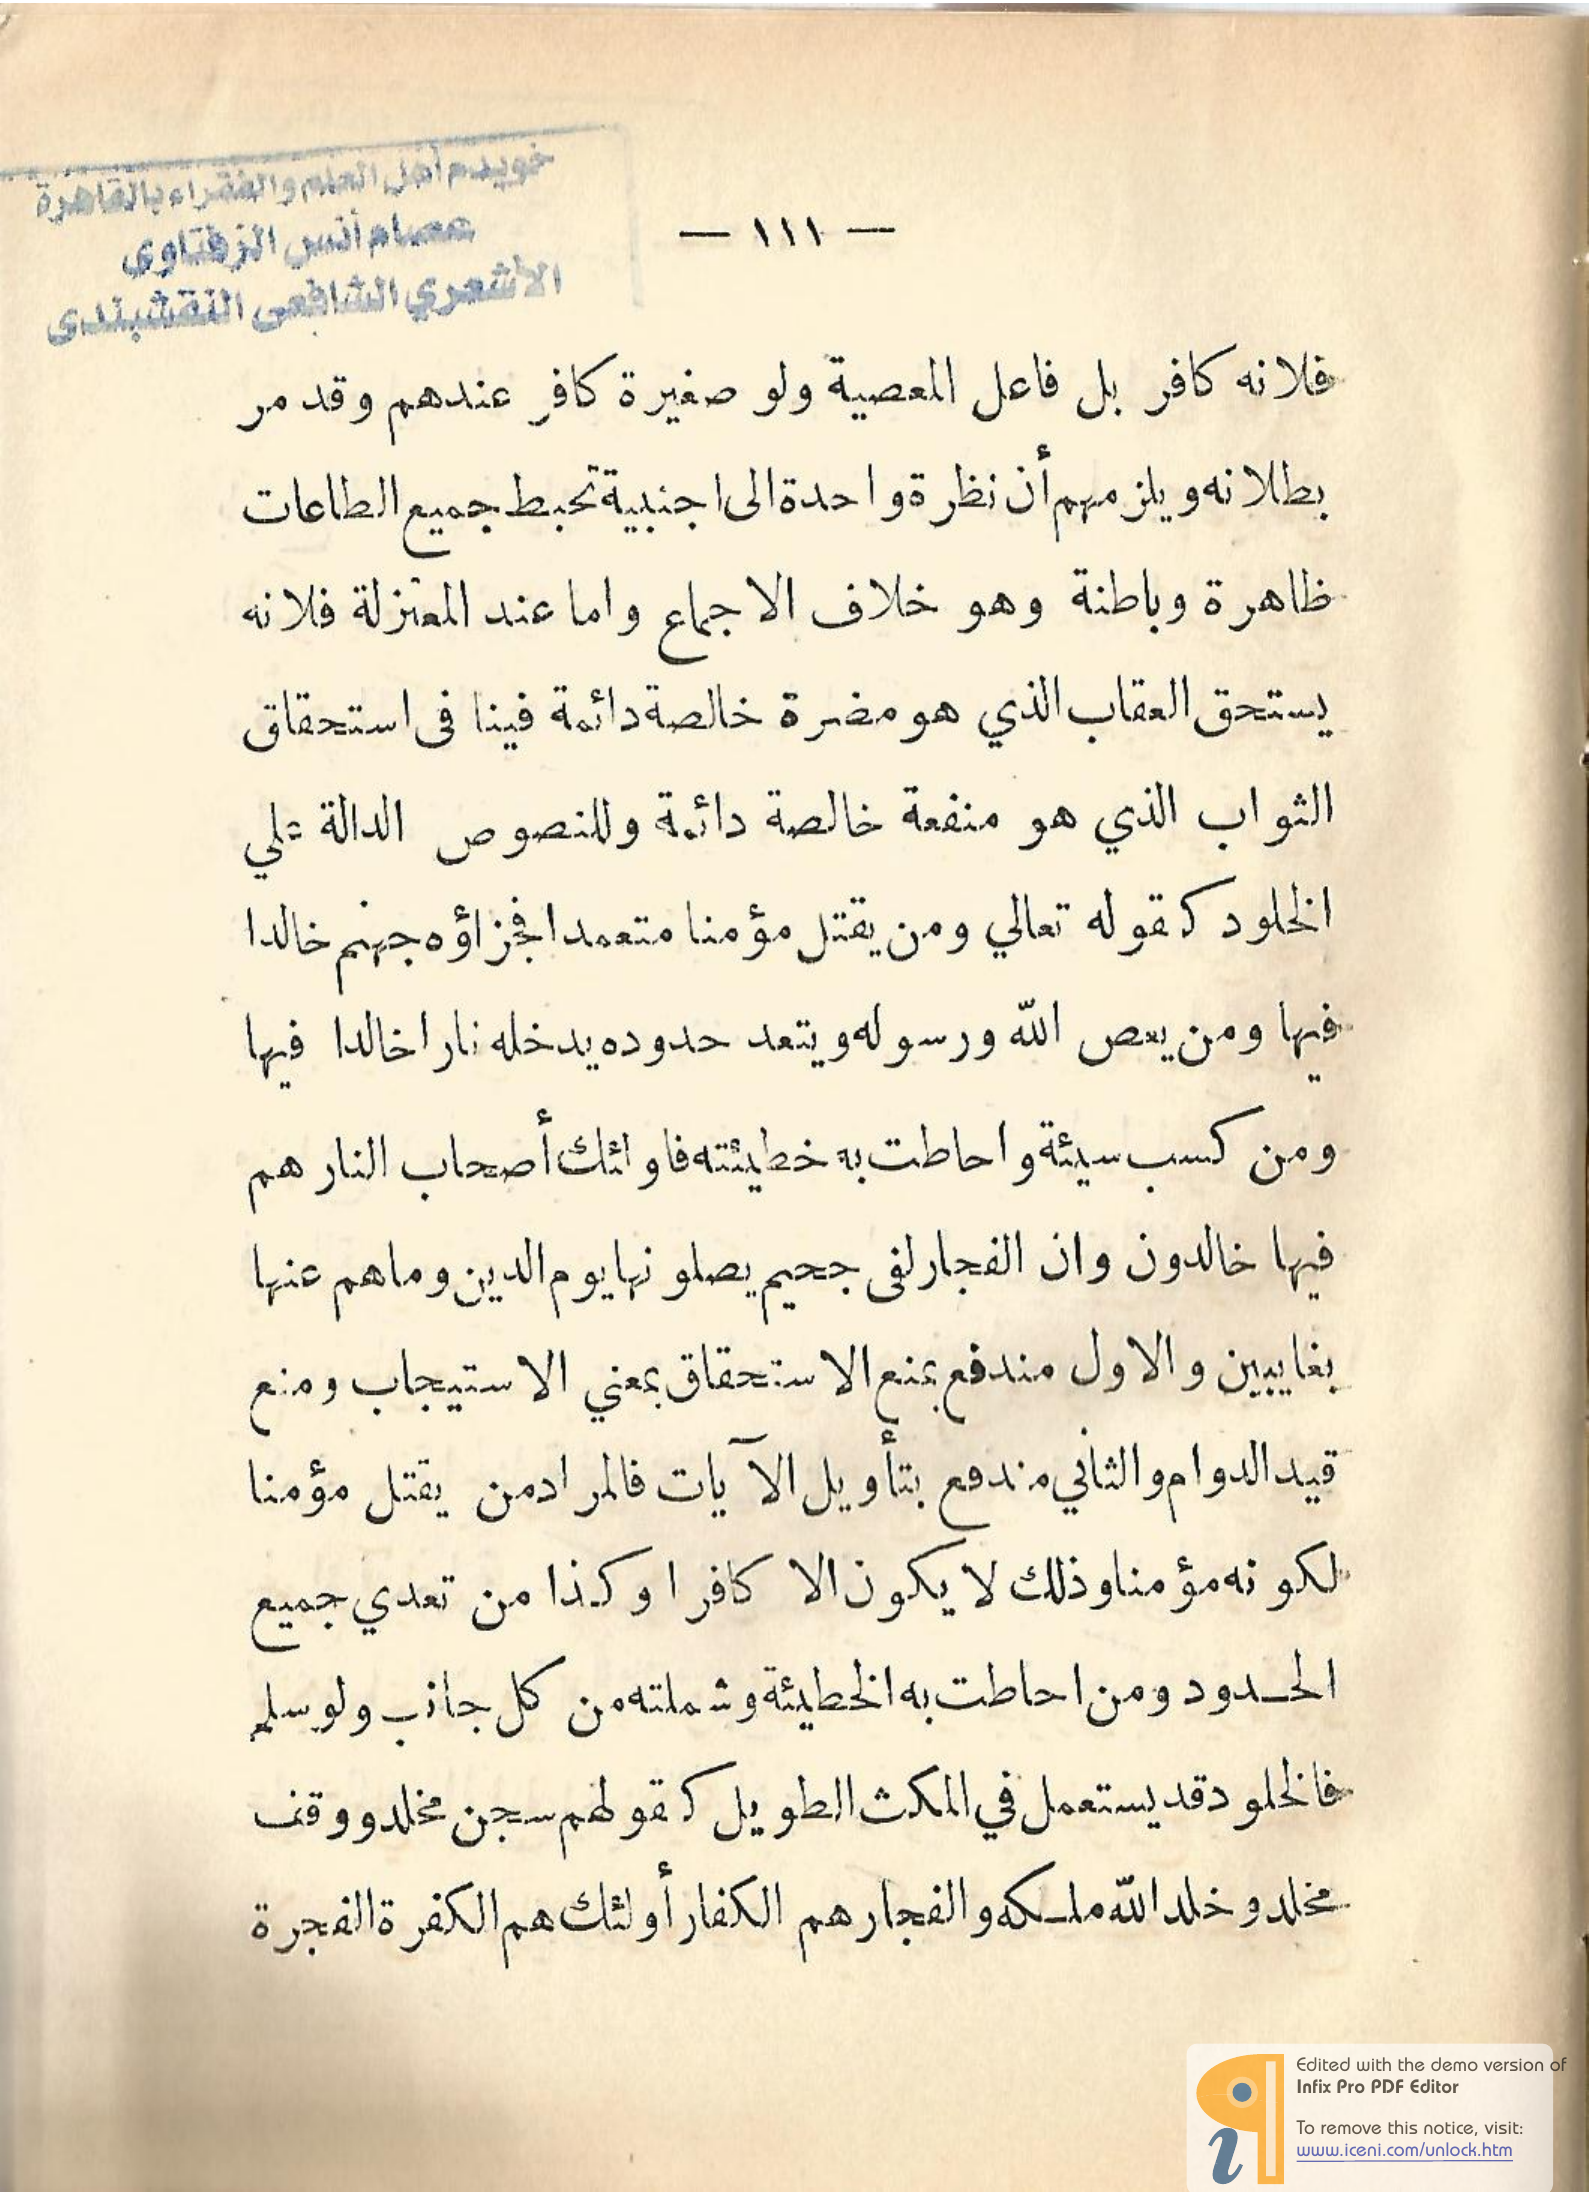 خويدم أهل العلم والفقراء بالقاهرة
عصام أنس الزفتاوى
الأشعري الشافعى النقشبندى
— ١١١ —
فلانه كافر بل فاعل المعصية ولو صغيرة كافر عندهم وقد مر
بطلانه ويلزمهم أن نظرة واحدة الى اجنبية تحبط جميع الطاعات
ظاهرة وباطنة وهو خلاف الاجماع واما عند المعتزلة فلانه
يستحق العقاب الذي هو مضرة خالصة دائمة فينا فى استحقاق
الثواب الذي هو منفعة خالصة دائمة وللنصوص الدالة علي
الخلود كقوله تعالي ومن يقتل مؤمنا متعمدا فجزاؤه جهنم خالدا
فيها ومن يعص الله ورسوله ويتعد حدوده يدخله نارا خالدا فيها
ومن كسب سيئة واحاطت به خطيئته فاولئك أصحاب النار هم
فيها خالدون وان الفجار لفى جحيم يصلونها يوم الدين وماهم عنها
بغايبين والاول مندفع بمنع الاستحقاق بمعني الاستيجاب ومنع
قيد الدوام والثاني مندفع بتأويل الآيات فالمراد من يقتل مؤمنا
لكونه مؤمنا وذلك لا يكون الا كافرا وكذا من تعدي جميع
الحـدود ومن احاطت به الخطيئة وشملته من كل جانب ولو سلم
فالخلود قد يستعمل في المكث الطويل كقولهم سجن مخلد ووقف
مخلد وخلد الله ملـكه والفجار هم الكفار أولئك هم الكفرة الفجرة
Edited with the demo version of
Infix Pro PDF Editor
To remove this notice, visit:
www.iceni.com/unlock.htm